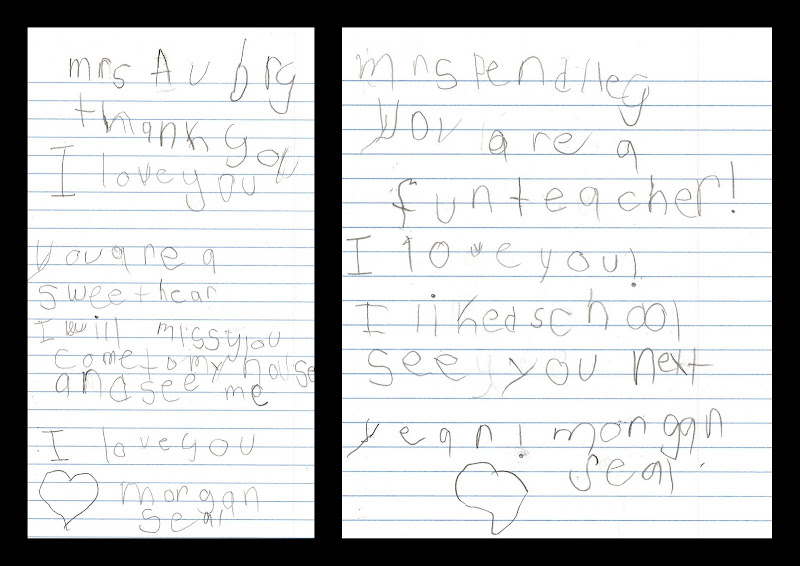 mrs Aubrg
thank you
I love you
you are a
sweethear
I will miss you
come to my house
and see me
I love you
morgan
seal
mrs pendleg
you are a
fun teacher!
I love you!
I liked school
see you next
year! morgan
seal